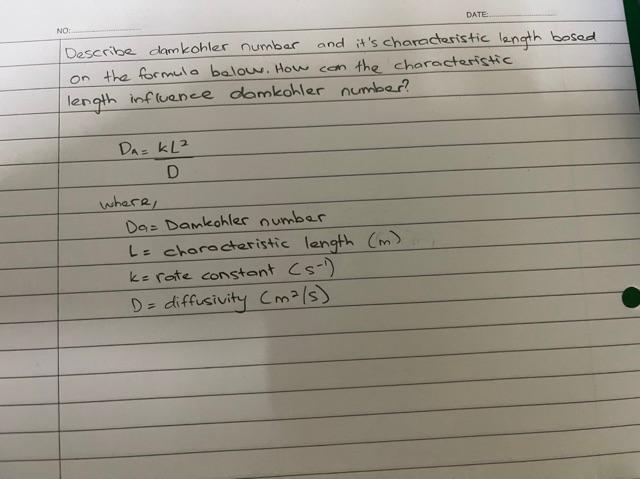 NO:
DATE:
Describe damkohler number and it's characteristic length based
on the formula below. How can the characteristic
length influence damkohler number?
DA = kL²
D
where,
Da = Damkohler number
L = characteristic length (m)
k = rate constant (s⁻¹)
D = diffusivity (m²/s)